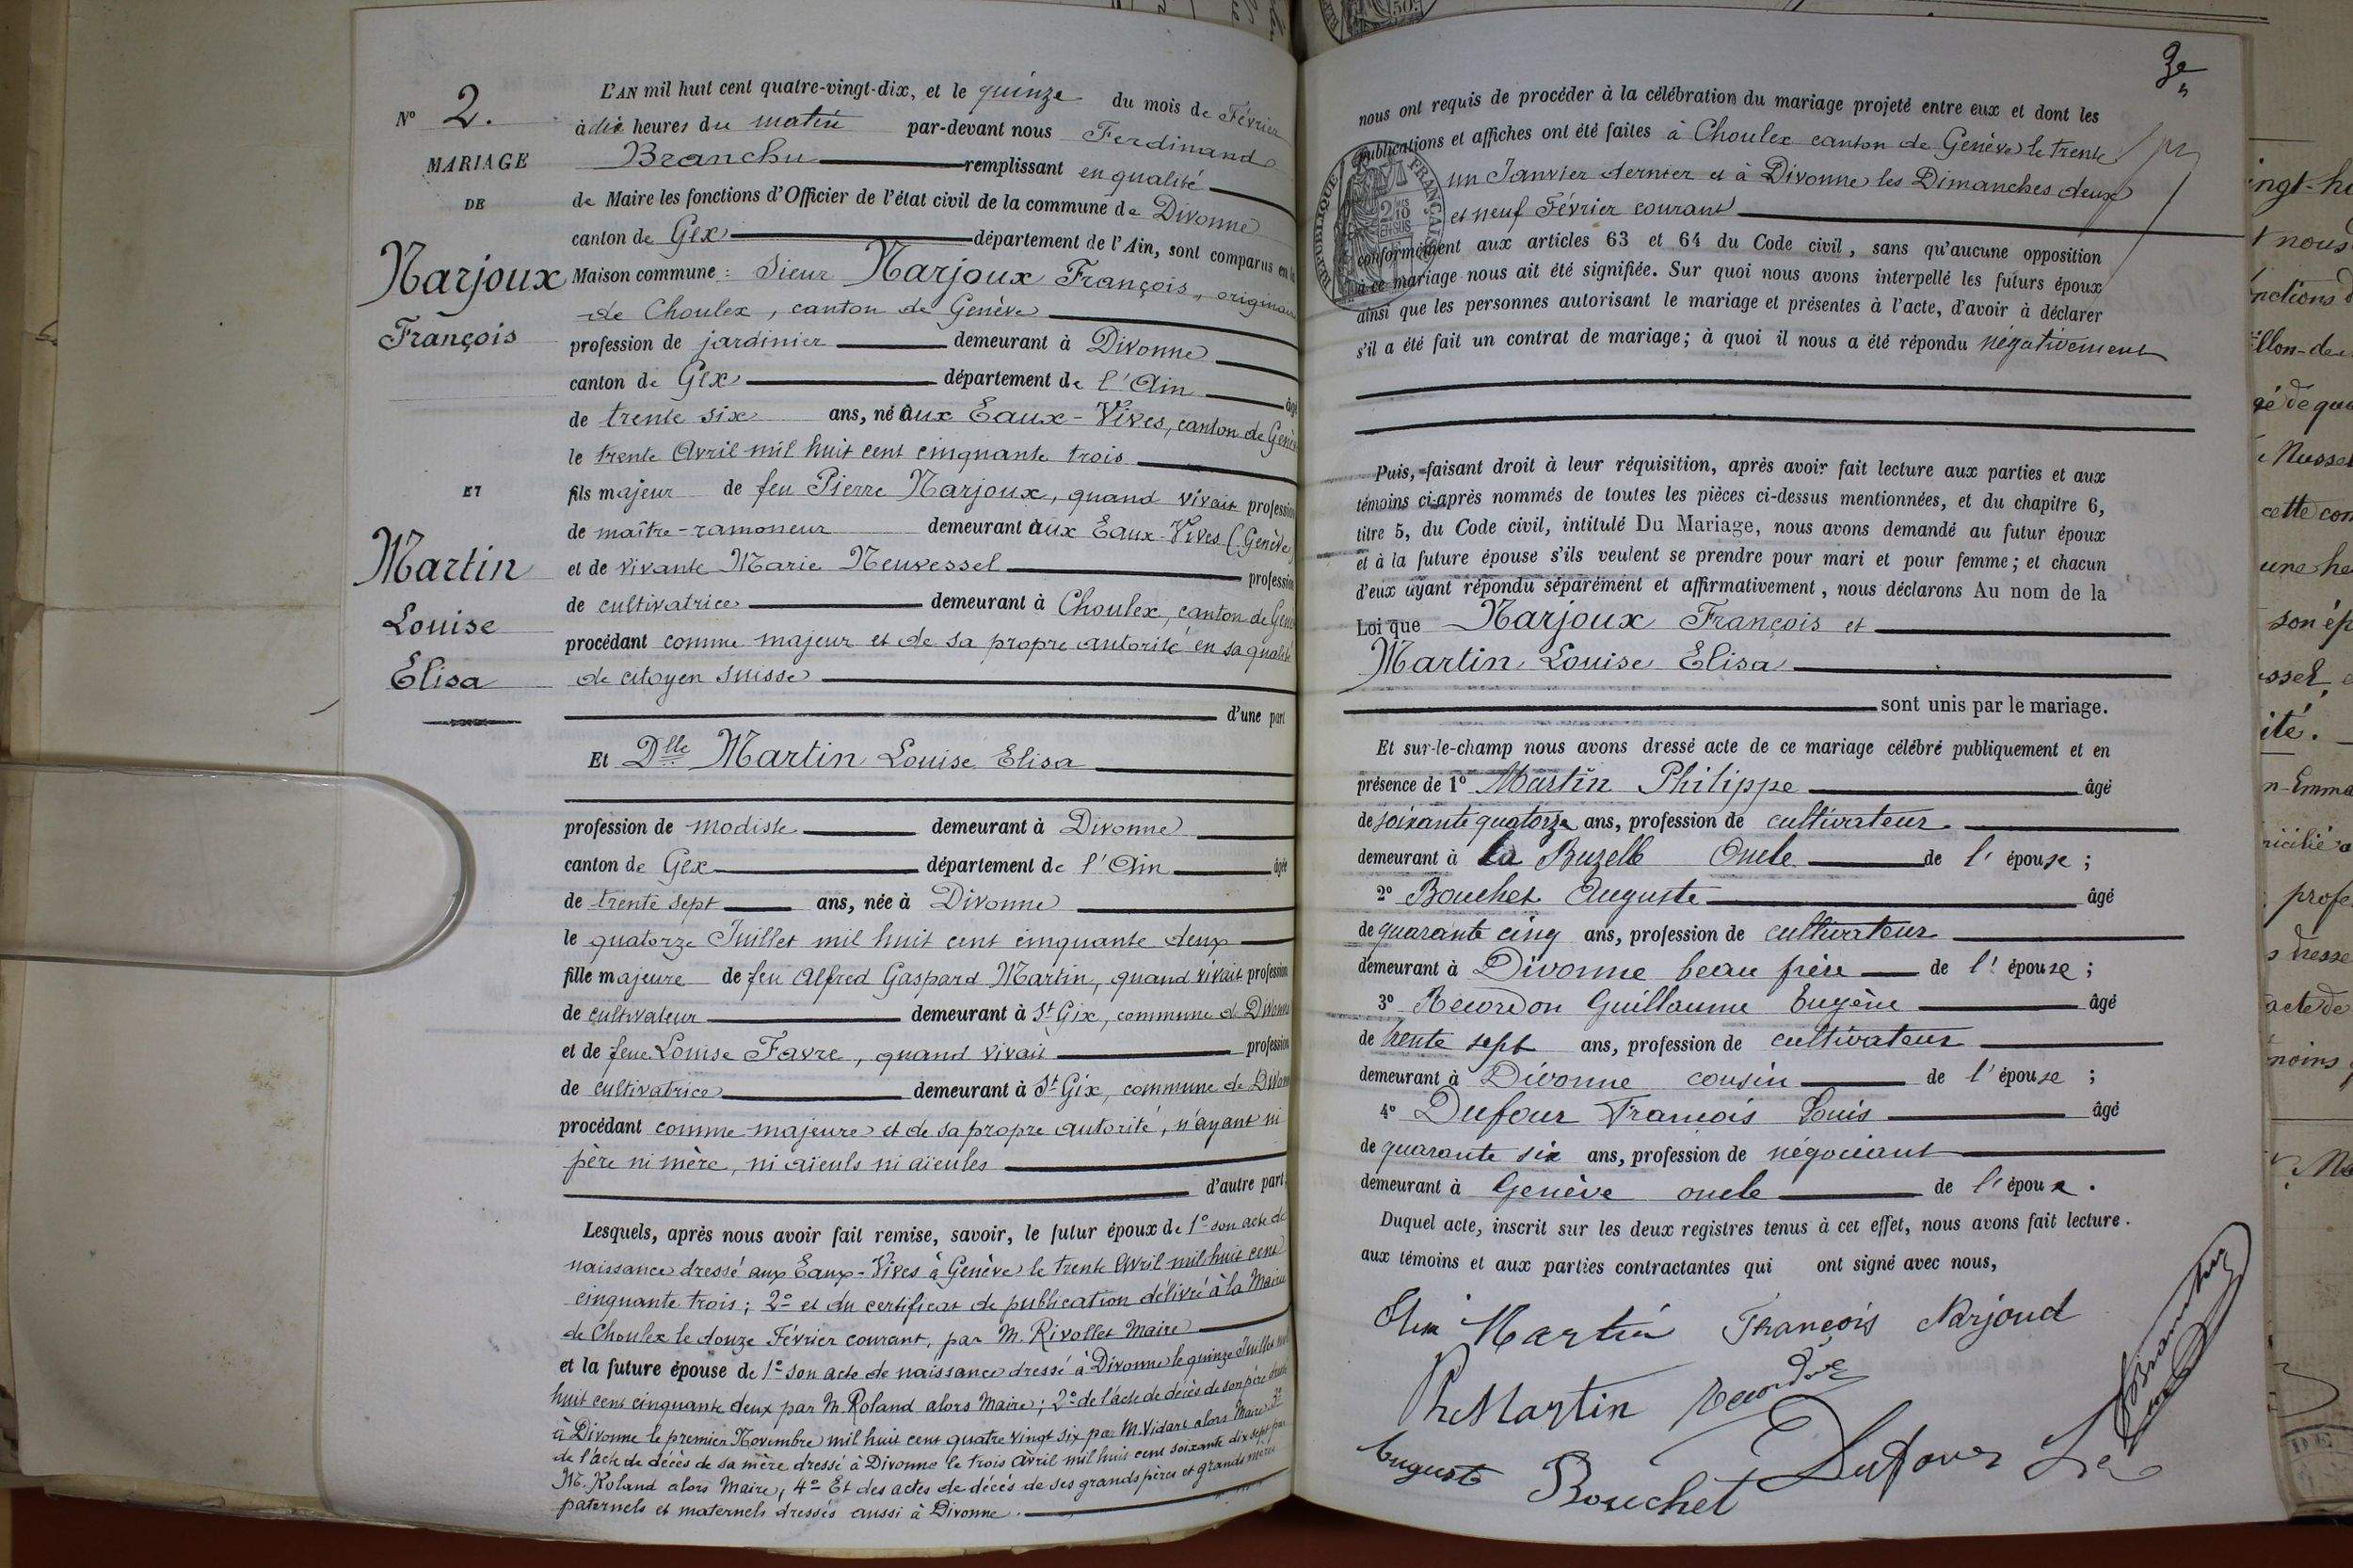 N° 2.
MARIAGE
DE
Narjoux
François
ET
Martin
Louise
Elisa
L'AN mil huit cent quatre-vingt-dix, et le quinze du mois de Février
à dix heures du matin par-devant nous Ferdinand
Branchu remplissant en qualité
de Maire les fonctions d'Officier de l'état civil de la commune de Divonne
canton de Gex département de l'Ain, sont comparus en la
Maison commune : Sieur Narjoux François, originaire
de Choulex, canton de Genève
profession de jardinier demeurant à Divonne
canton de Gex département de l'Ain âgé
de trente six ans, né aux Eaux-Vives, canton de Genève
le trente Avril mil huit cent cinquante trois
fils majeur de feu Pierre Narjoux, quand vivait profession
de maître-ramoneur demeurant aux Eaux-Vives (Genève)
et de vivante Marie Neuvessel profession
de cultivatrice demeurant à Choulex, canton de Genè
procédant comme majeur et de sa propre autorité en sa qualité
de citoyen suisse
d'une part
Et Dlle Martin Louise Elisa
profession de modiste demeurant à Divonne
canton de Gex département de l'Ain âgée
de trente sept ans, née à Divonne
le quatorze Juillet mil huit cent cinquante deux
fille majeure de feu Alfred Gaspard Martin, quand vivait profession
de cultivateur demeurant à St Gix, commune de Divonne
et de feue Louise Favre, quand vivait profession
de cultivatrice demeurant à St Gix, commune de Divonne
procédant comme majeure et de sa propre autorité, n'ayant ni
père ni mère, ni aïeuls ni aïeules
d'autre part,
Lesquels, après nous avoir fait remise, savoir, le futur époux de 1° son acte de
naissance dressé aux Eaux-Vives à Genève le trente Avril mil huit cent
cinquante trois ; 2° et du certificat de publication délivré à la Mairie
de Choulex le douze Février courant, par M. Rivollet Maire
et la future épouse de 1° son acte de naissance dressé à Divonne le quinze Juillet mil
huit cent cinquante deux par M. Roland alors Maire ; 2° de l'acte de décès de son père dressé
à Divonne le premier Novembre mil huit cent quatre vingt six par M. Vidart alors Maire 3°
de l'acte de décès de sa mère dressé à Divonne le trois Avril mil huit cent soixante dix sept par
M. Roland alors Maire, 4° Et des actes de décès de ses grands pères et grands mères
paternels et maternels dressés aussi à Divonne.
nous ont requis de procéder à la célébration du mariage projeté entre eux et dont les
publications et affiches ont été faites à Choulex canton de Genève le trente
un Janvier dernier et à Divonne les Dimanches deux
et neuf Février courant
conformément aux articles 63 et 64 du Code civil, sans qu'aucune opposition
à ce mariage nous ait été signifiée. Sur quoi nous avons interpellé les futurs époux
ainsi que les personnes autorisant le mariage et présentes à l'acte, d'avoir à déclarer
s'il a été fait un contrat de mariage ; à quoi il nous a été répondu négativement
Puis, faisant droit à leur réquisition, après avoir fait lecture aux parties et aux
témoins ci-après nommés de toutes les pièces ci-dessus mentionnées, et du chapitre 6,
titre 5, du Code civil, intitulé Du Mariage, nous avons demandé au futur époux
et à la future épouse s'ils veulent se prendre pour mari et pour femme ; et chacun
d'eux ayant répondu séparément et affirmativement, nous déclarons Au nom de la
Loi que Narjoux François et
Martin Louise Elisa
sont unis par le mariage.
Et sur-le-champ nous avons dressé acte de ce mariage célébré publiquement et en
présence de 1° Martin Philippe âgé
de soixante quatorze ans, profession de cultivateur
demeurant à la Oncle de l'épouse ;
2° Bouchet Auguste âgé
de quarante cinq ans, profession de cultivateur
demeurant à Divonne beau frère de l'épouse ;
3° Recordon Guillaume Eugène âgé
de trente sept ans, profession de cultivateur
demeurant à Divonne cousin de l'épouse ;
4° Dufour François Louis âgé
de quarante six ans, profession de négociant
demeurant à Genève oncle de l'épouse.
Duquel acte, inscrit sur les deux registres tenus à cet effet, nous avons fait lecture.
aux témoins et aux parties contractantes qui ont signé avec nous,
Elisa Martin François Narjoud
Ph Martin Recordon
Auguste Bouchet Dufour Ls
Branchu
RÉPUBLIQUE FRANÇAISE